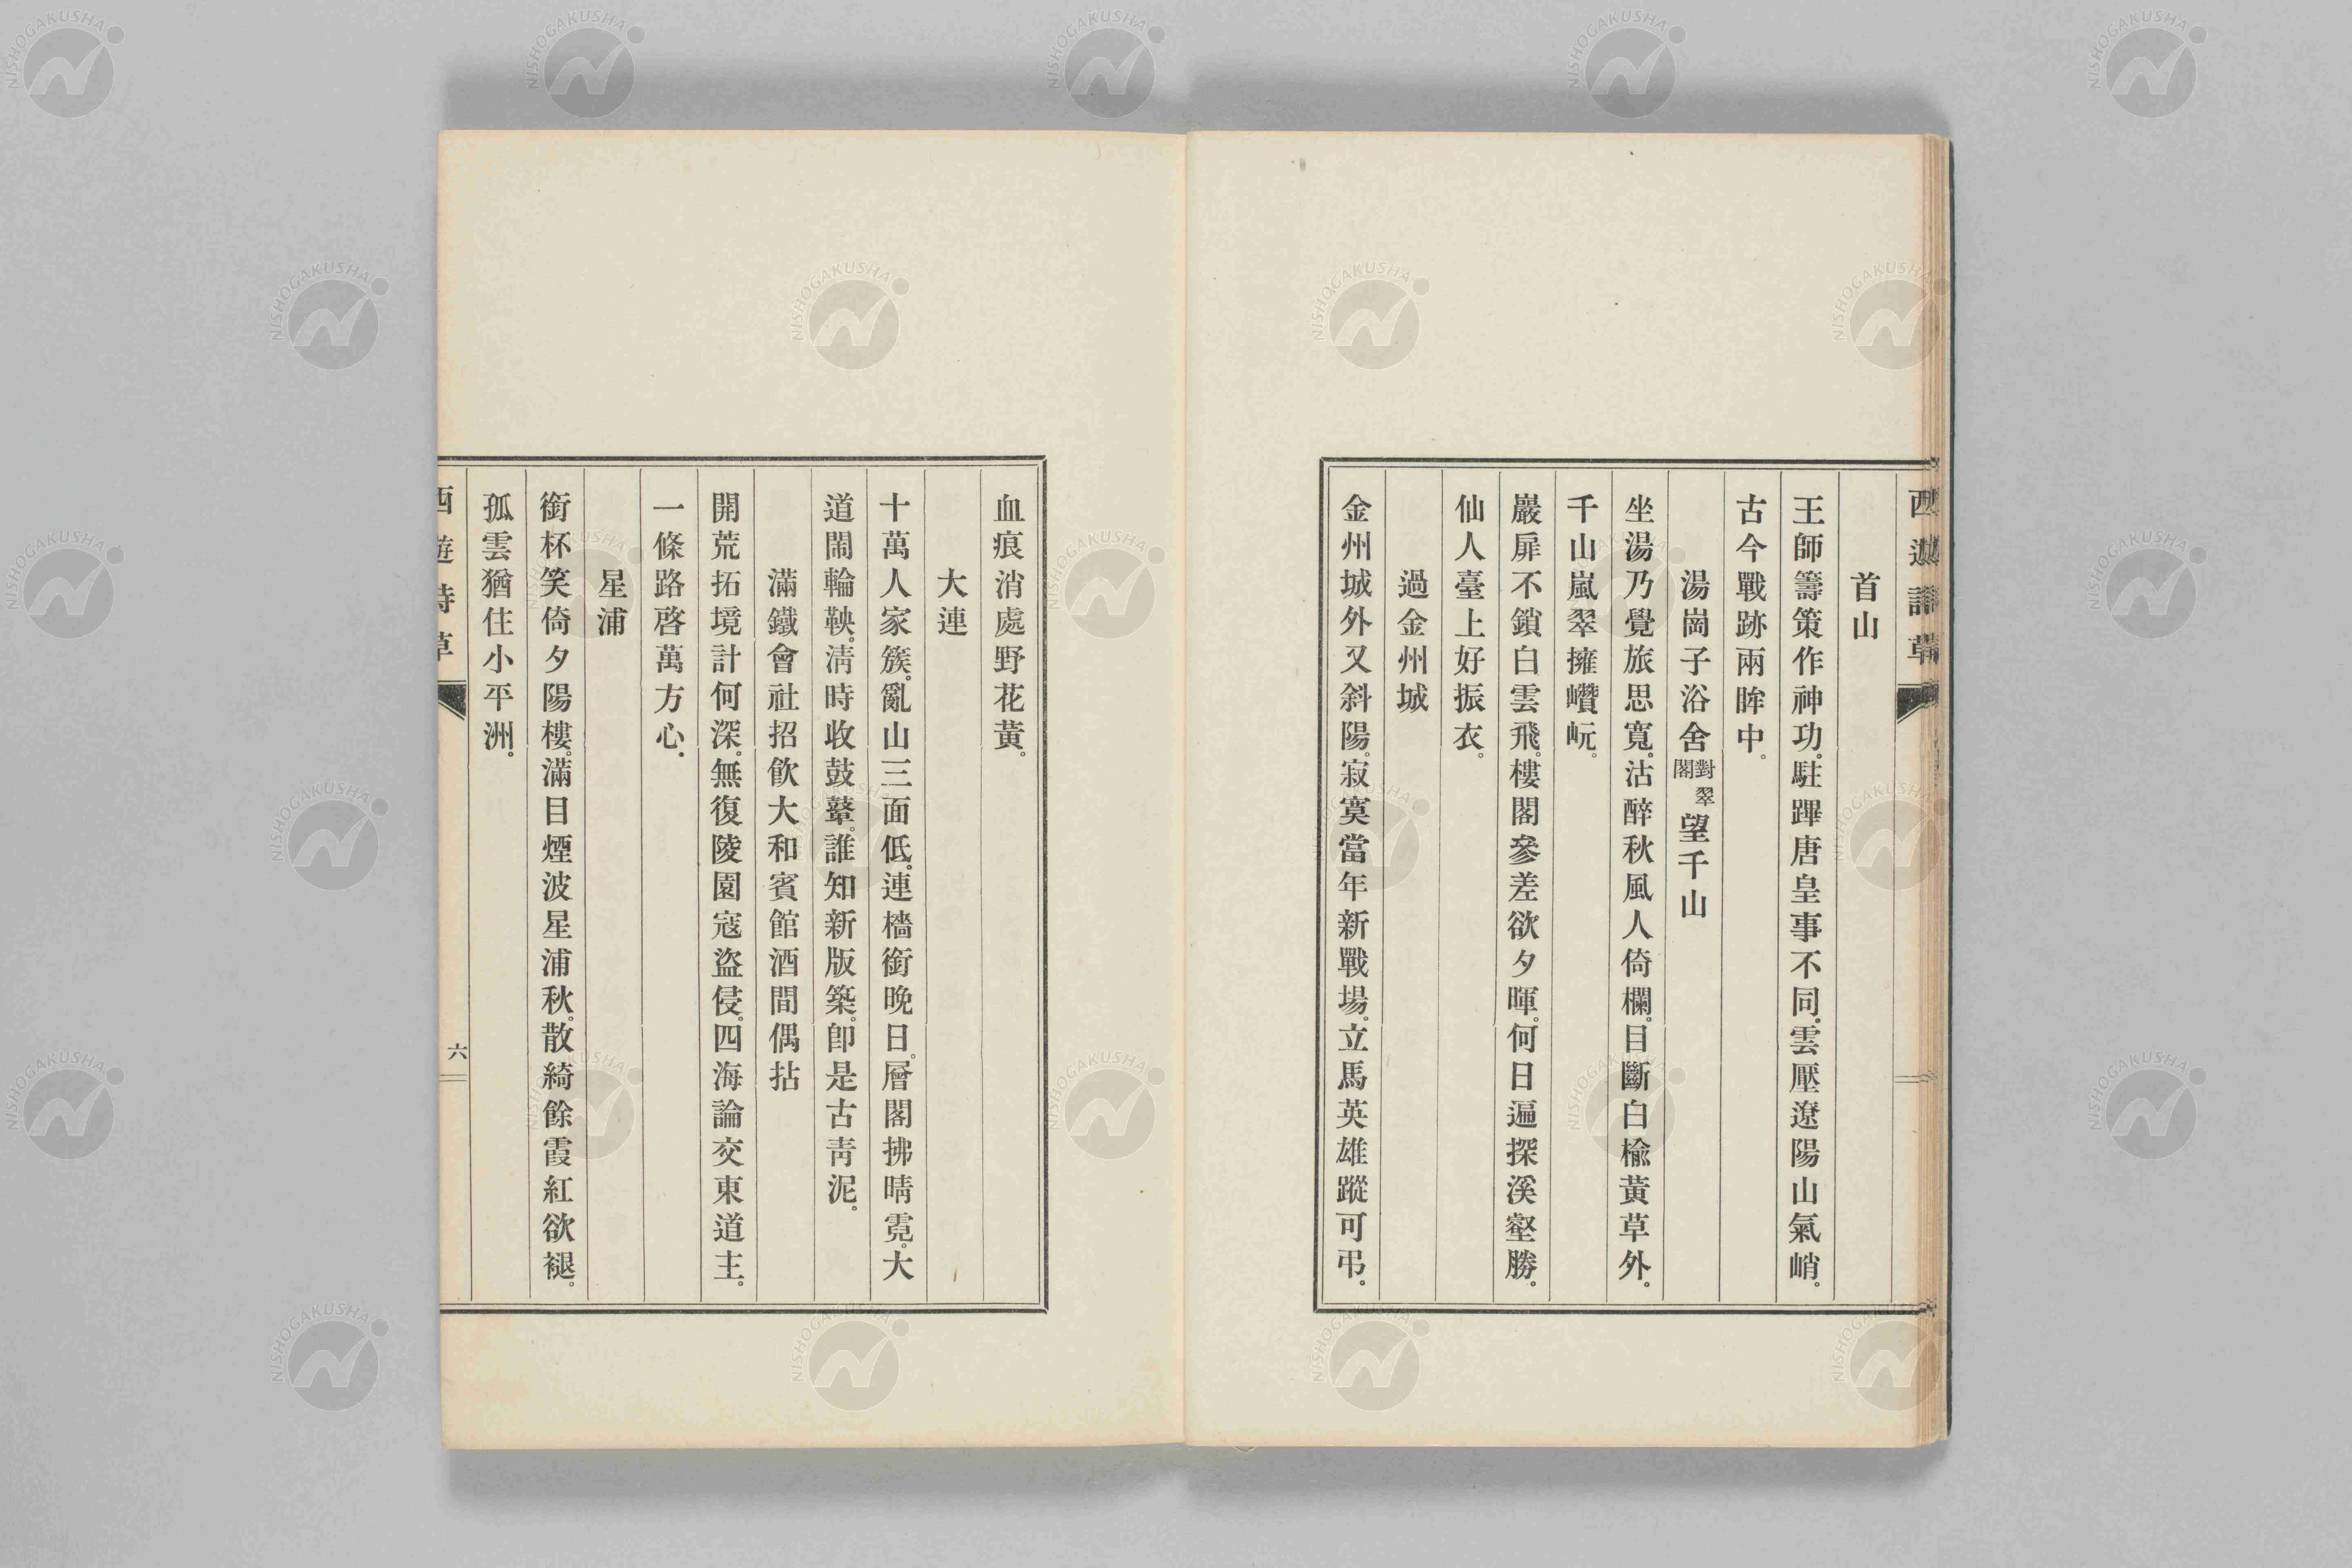 西遊詩草
首山
王師籌策作神功。駐蹕唐皇事不同。雲壓遼陽山氣峭。
古今戰跡兩眸中。
湯崗子浴舍對翠閣望千山
坐湯乃覺旅思寬。沽醉秋風人倚欄。目斷白楡黃草外。
千山嵐翠擁巑岏。
巖扉不鎖白雲飛。樓閣參差欲夕暉。何日遍探溪壑勝。
仙人臺上好振衣。
過金州城
金州城外又斜陽。寂寞當年新戰場。立馬英雄蹤可弔。
血痕消處野花黃。
大連
十萬人家簇。亂山三面低。連檣銜晚日。層閣拂晴霓。大
道鬧輪鞅。淸時收鼓鼙。誰知新版築。卽是古靑泥。
滿鐵會社招飮大和賓館酒間偶拈
開荒拓境計何深。無復陵園寇盜侵。四海論交東道主。
一條路啓萬方心。
星浦
銜杯笑倚夕陽樓。滿目煙波星浦秋。散綺餘霞紅欲褪。
孤雲猶住小平洲。
西遊詩草
六
NISHOGAKUSHA